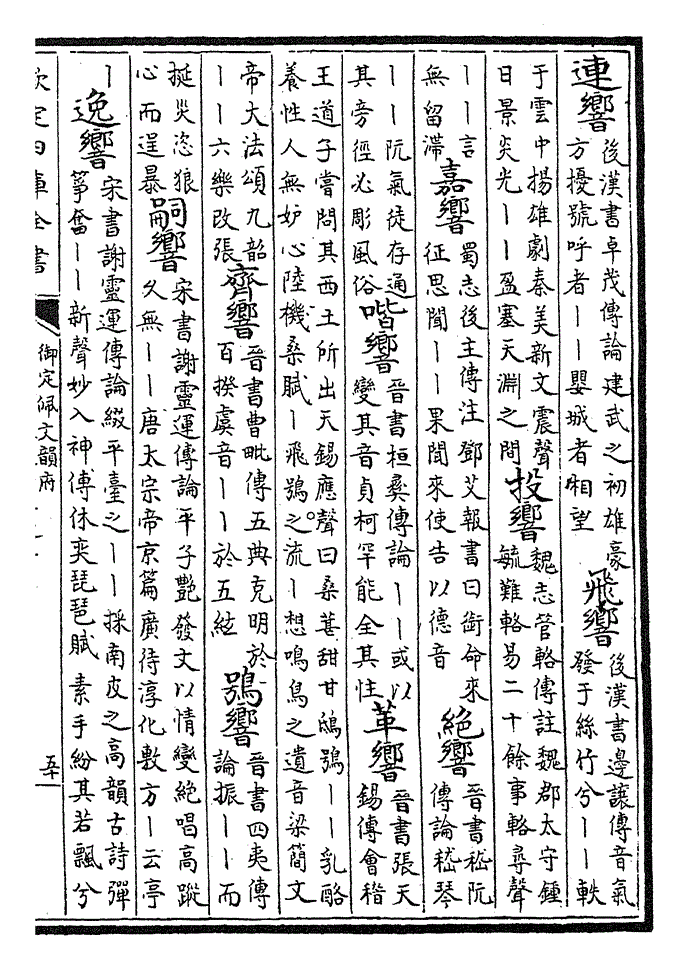 連響
後漢書卓茂傳論建武之初雄豪
方擾號呼者丨丨嬰城者相望
飛響
後漢書邊讓傳音氣
發于絲竹兮丨丨軼
于雲中揚雄劇秦美新文震聲
日景炎光丨丨盈塞天淵之間
投響
魏志管輅傳註魏郡太守鍾
毓難輅易二十餘事輅尋聲
丨丨言
無留滯
嘉響
蜀志後主傳注鄧艾報書曰銜命來
征思聞丨丨果聞來使告以德音
絶響
晉書嵇阮
傳論嵇琴
丨丨阮氣徒存通
其旁徑必彫風俗
喈響
晉書桓彞傳論丨丨或以
變其音貞柯罕能全其性
革響
晉書張天
錫傳會稽
王道子嘗問其西土所出天錫應聲曰桑葚甜甘鴟鴞丨丨乳酪
養性人無妒心陸機桑賦丨飛鴞之流丨想鳴鳥之遺音梁簡文
帝大法頌九韶
丨丨六樂改張
齊響
晉書曹毗傳五典克明於
百揆虞音丨丨於五絃
鴞響
晉書四夷傳
論振丨丨而
挺災恣狼
心而逞暴
嗣響
宋書謝靈運傳論平子艷發文以情變絶唱高蹤
久無丨丨唐太宗帝京篇廣待淳化敷方丨云亭
丨
逸響
宋書謝靈運傳論綴平臺之丨丨採南皮之高韻古詩彈
箏奮丨丨新聲妙入神傅休奕琵琶賦素手紛其若飄兮
欽定四庫全書
御定佩文韻府